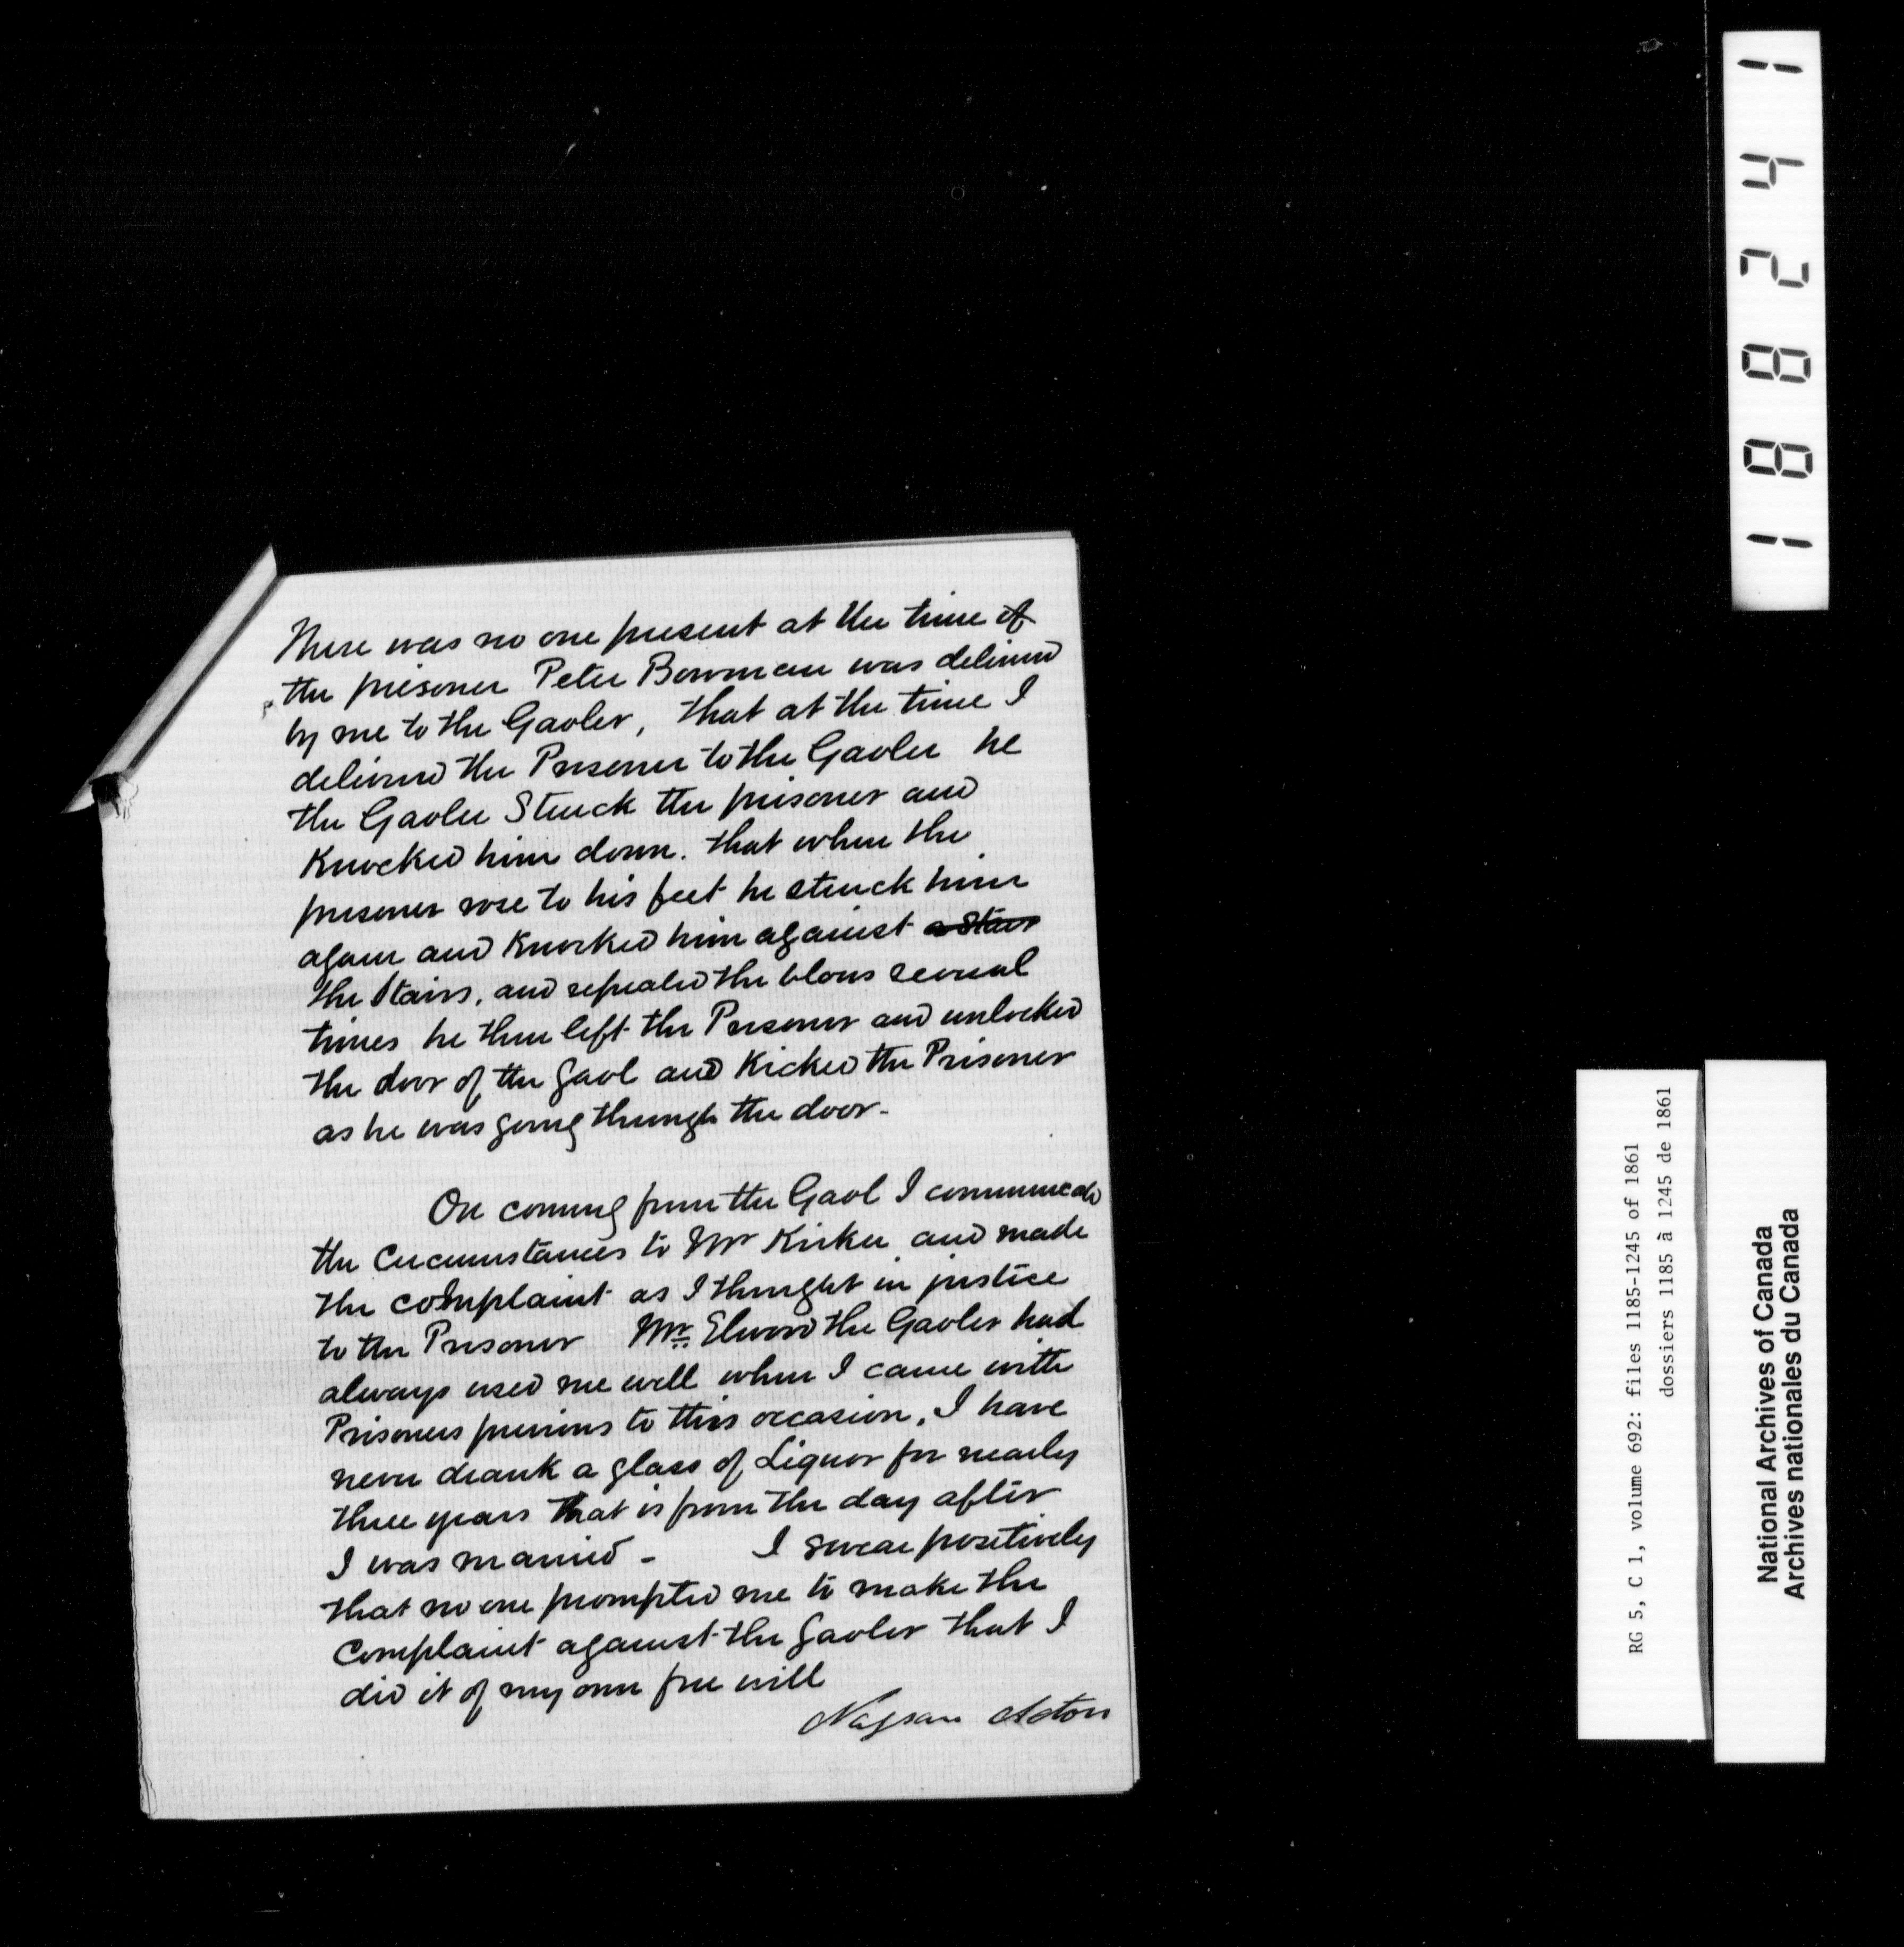 There was no one present at the time of
the prisoner Peter Bowman was delivered
by me to the Gaoler, that at the time I
delivered the Prisoner to the Gaoler he
the Gaoler Struck the prisoner and
Knocked him down. that when the
prisoner rose to his feet he struck him
again and Knocked him against a Stair
the Stairs, and repeated the blows several
times he then left the Prisoner and unlocked
the door of the gaol and Kicked the Prisoner
as he was going through the door-
On coming from the Gaol I communicated
the Circumstances to Mr Kirker and made
the complaint as I thought in justice
to the Prisoner Mr. the Gaoler had
always used me well when I came with
Prisoners previous to this occasion, I have
never drank a glass of Liquor for nearly
three years that is from the day after
I was married - I swear positively
that no one prompted me to make the
Complaint against the gaoler that I
did it of my own free will
Acton
188241
RG 5, C 1, volume 692: files 1185-1245 of 1861
dossiers 1185 à 1245 de 1861
National Archives of Canada
Archives nationales du Canada